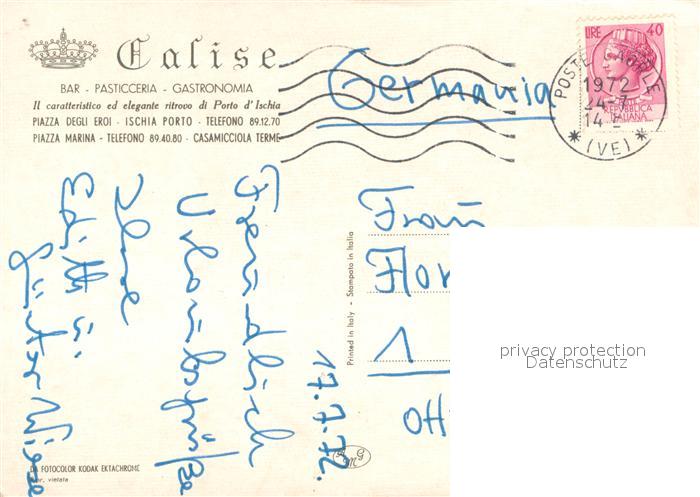 Calise
BAR - PASTICCERIA - GASTRONOMIA
Il caratteristico ed elegante ritrovo di Porto d'Ischia
PIAZZA DEGLI EROI - ISCHIA PORTO - TELEFONO 89.12.70
PIAZZA MARINA - TELEFONO 89.40.80 - CASAMICCIOLA TERME
Germania
LIRE 40
REPUBBLICA
ITALIANA
POSTE
1972
24-7
14
(VE)
17.7.72.
Freundlich
Urlaubsgrüße
Ihre
Edith u.
Günter
Printed in Italy - Stampato in Italia
Frau
Flor
1
OH
privacy protection
Datenschutz
DA FOTOCOLOR KODAK EKTACHROME
vietata